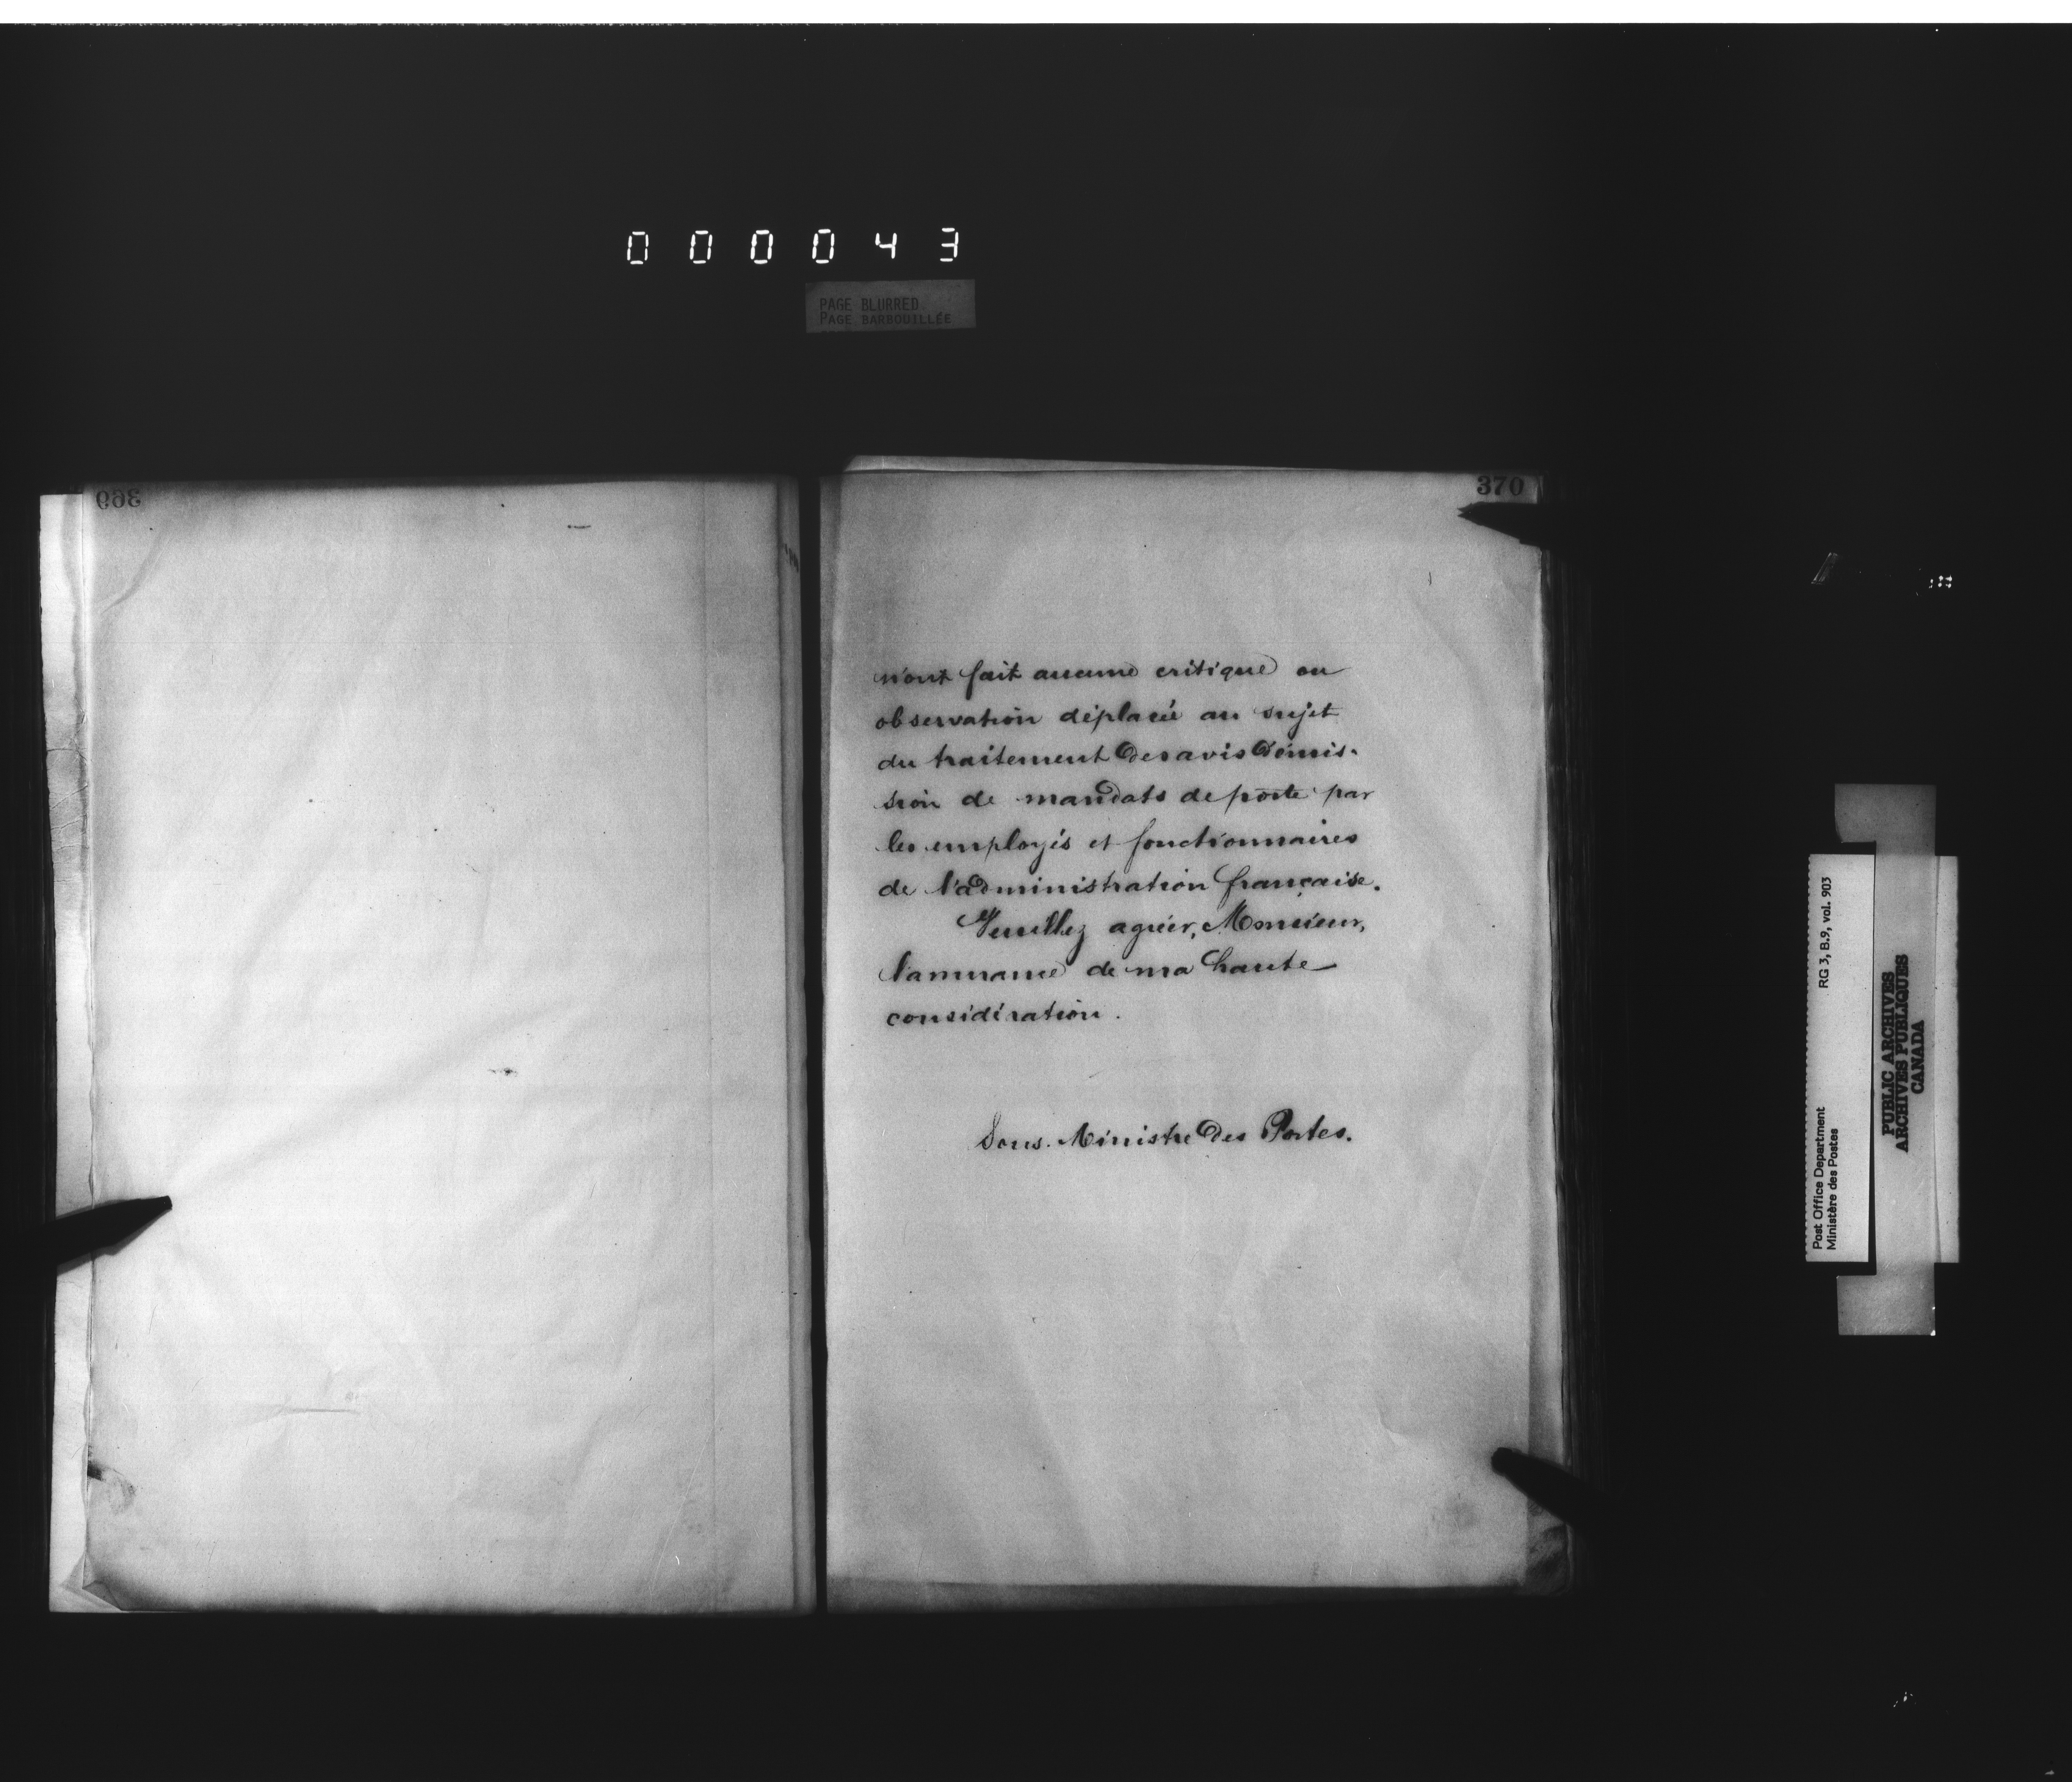 000043
PAGE BLURRED
PAGE BARBOUILLÉE
369
370
n'ont fait aucune critique ou
observation déplacée au sujet
du traitement des avis d'émis-
sion de mandats de poste par
les employés et fonctionnaires
de l'administration française.
Veuillez agréer, Monsieur,
l'assurance de ma haute
considération.
Sous-Ministre des Postes.
Post Office Department
Ministère des Postes
RG 3, B.9, vol. 903
PUBLIC ARCHIVES
ARCHIVES PUBLIQUES
CANADA